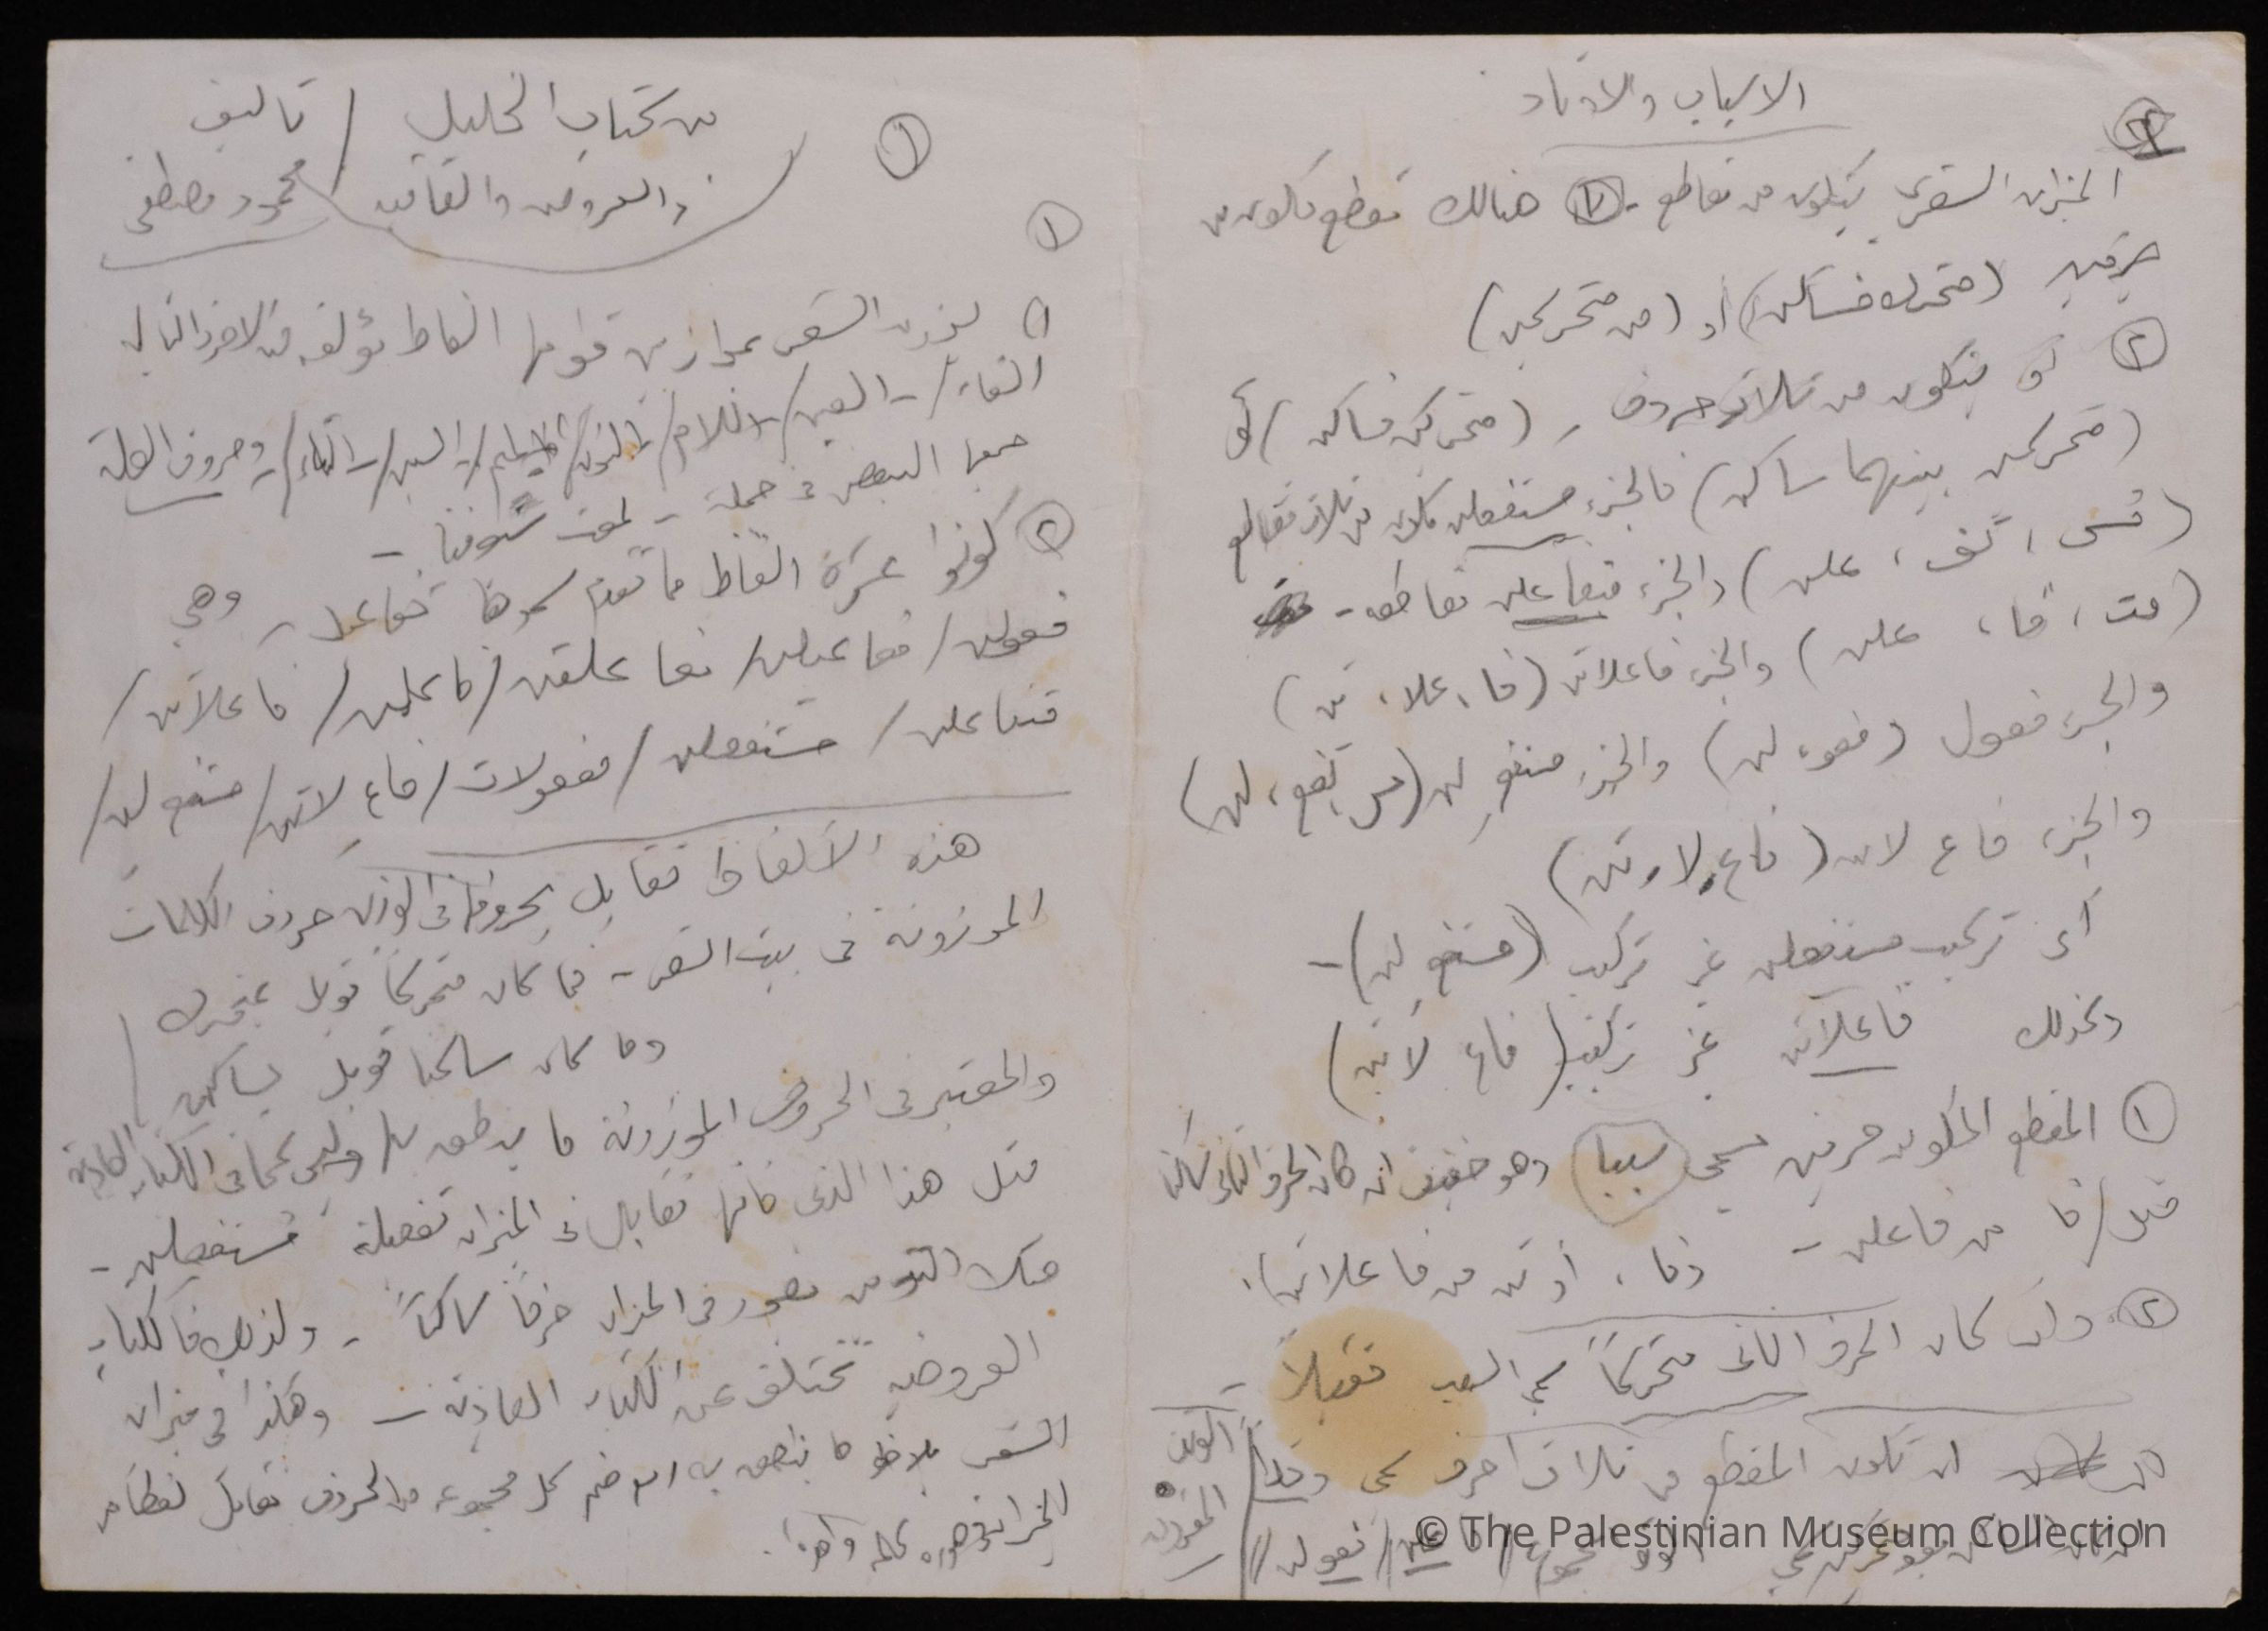 من كتاب الخليل / تأليف
في العروض والقافيه محمود مصطفى
١
١
١) يوزن الشعر بموازين قوامها الفاظ مؤلفه من الاحرف التاليه
الفاء / - العين / - اللام / - النون / الميم / - السين / - التاء / - وحروف العلة
جمعها البعض في جملة - لمعت سيوفنا -
٢ كونوا عشرة الفاظ مما تقدم سموها تفاعيل - وهي
فعولن / مفاعيلن / مفاعلتن / فاعلن / فاعلاتن /
متفاعلن / مستفعلن / مفعولات / فاع لاتن / مستفع لن /
هذه الألفاظ تقابل بحروفها في الوزن حروف الكلمات
الموزونة في بيت الشعر - فما كان متحركاً قوبل بمتحرك
وما كان ساكنا قوبل بساكن
والمعتبر في الحروف الموزونة ما ينطق به / وليس كما في الكتابه العاديه
مثل هذا الذي فانها تقابل في الميزان تفعيلة مستفعلن -
التنوين يصور في الميزان حرفاً ساكناً - ولذلك فالكتابه
العروضيه تختلف عن الكتابه العاديه - وهكذا في ميزان
الشعر يلاحظ ما ينطق به ثم ضم كل مجموعه من الحروف تقابل لفظا من
الميزان في صوره كلمه واحده.
الاسباب والاوتاد
٣
الميزان الشعري يتكون من مقاطع - ١ هنالك مقطع مكون من
حرفين (متحرك فساكن) أو (من متحركين)
٢ أو يتكون من ثلاثة حروف - (متحركين فساكن) أو
(متحركين بينهما ساكن) فالجزء مستفعلن مكون من ثلاث مقاطع
(مُس، تَف، علن) والجزء متفاعلن مقاطعه -
(مت، فا، علن) والجزء فاعلاتن (فا، علا، تن)
والجزء فعولن (فعو، لن) والجزء مستفع لن (مس، تفع، لن)
والجزء فاع لاتن (فاع، لا، تن)
أي تركيب مستفعلن غير تركيب (مستفع لن) -
وكذلك فاعلاتن غير تركيب (فاع لاتن)
١ المقطع المكون من حرفين يسمى سببا وهو خفيف ان كان الحرف الثاني ساكنا
مثل / فا من فاعلن - وفا، أو تن من فاعلاتن.
٢ وان كان الحرف الثاني متحركاً سمي السبب ثقيلاً -
ان تكون المقطع من ثلاث احرف سمي وتداً
الوتد
المفروق
ان كان الساكن بعد متحركين سمي الوتد مجموعا // فاعلن // فعولن //
© The Palestinian Museum Collection